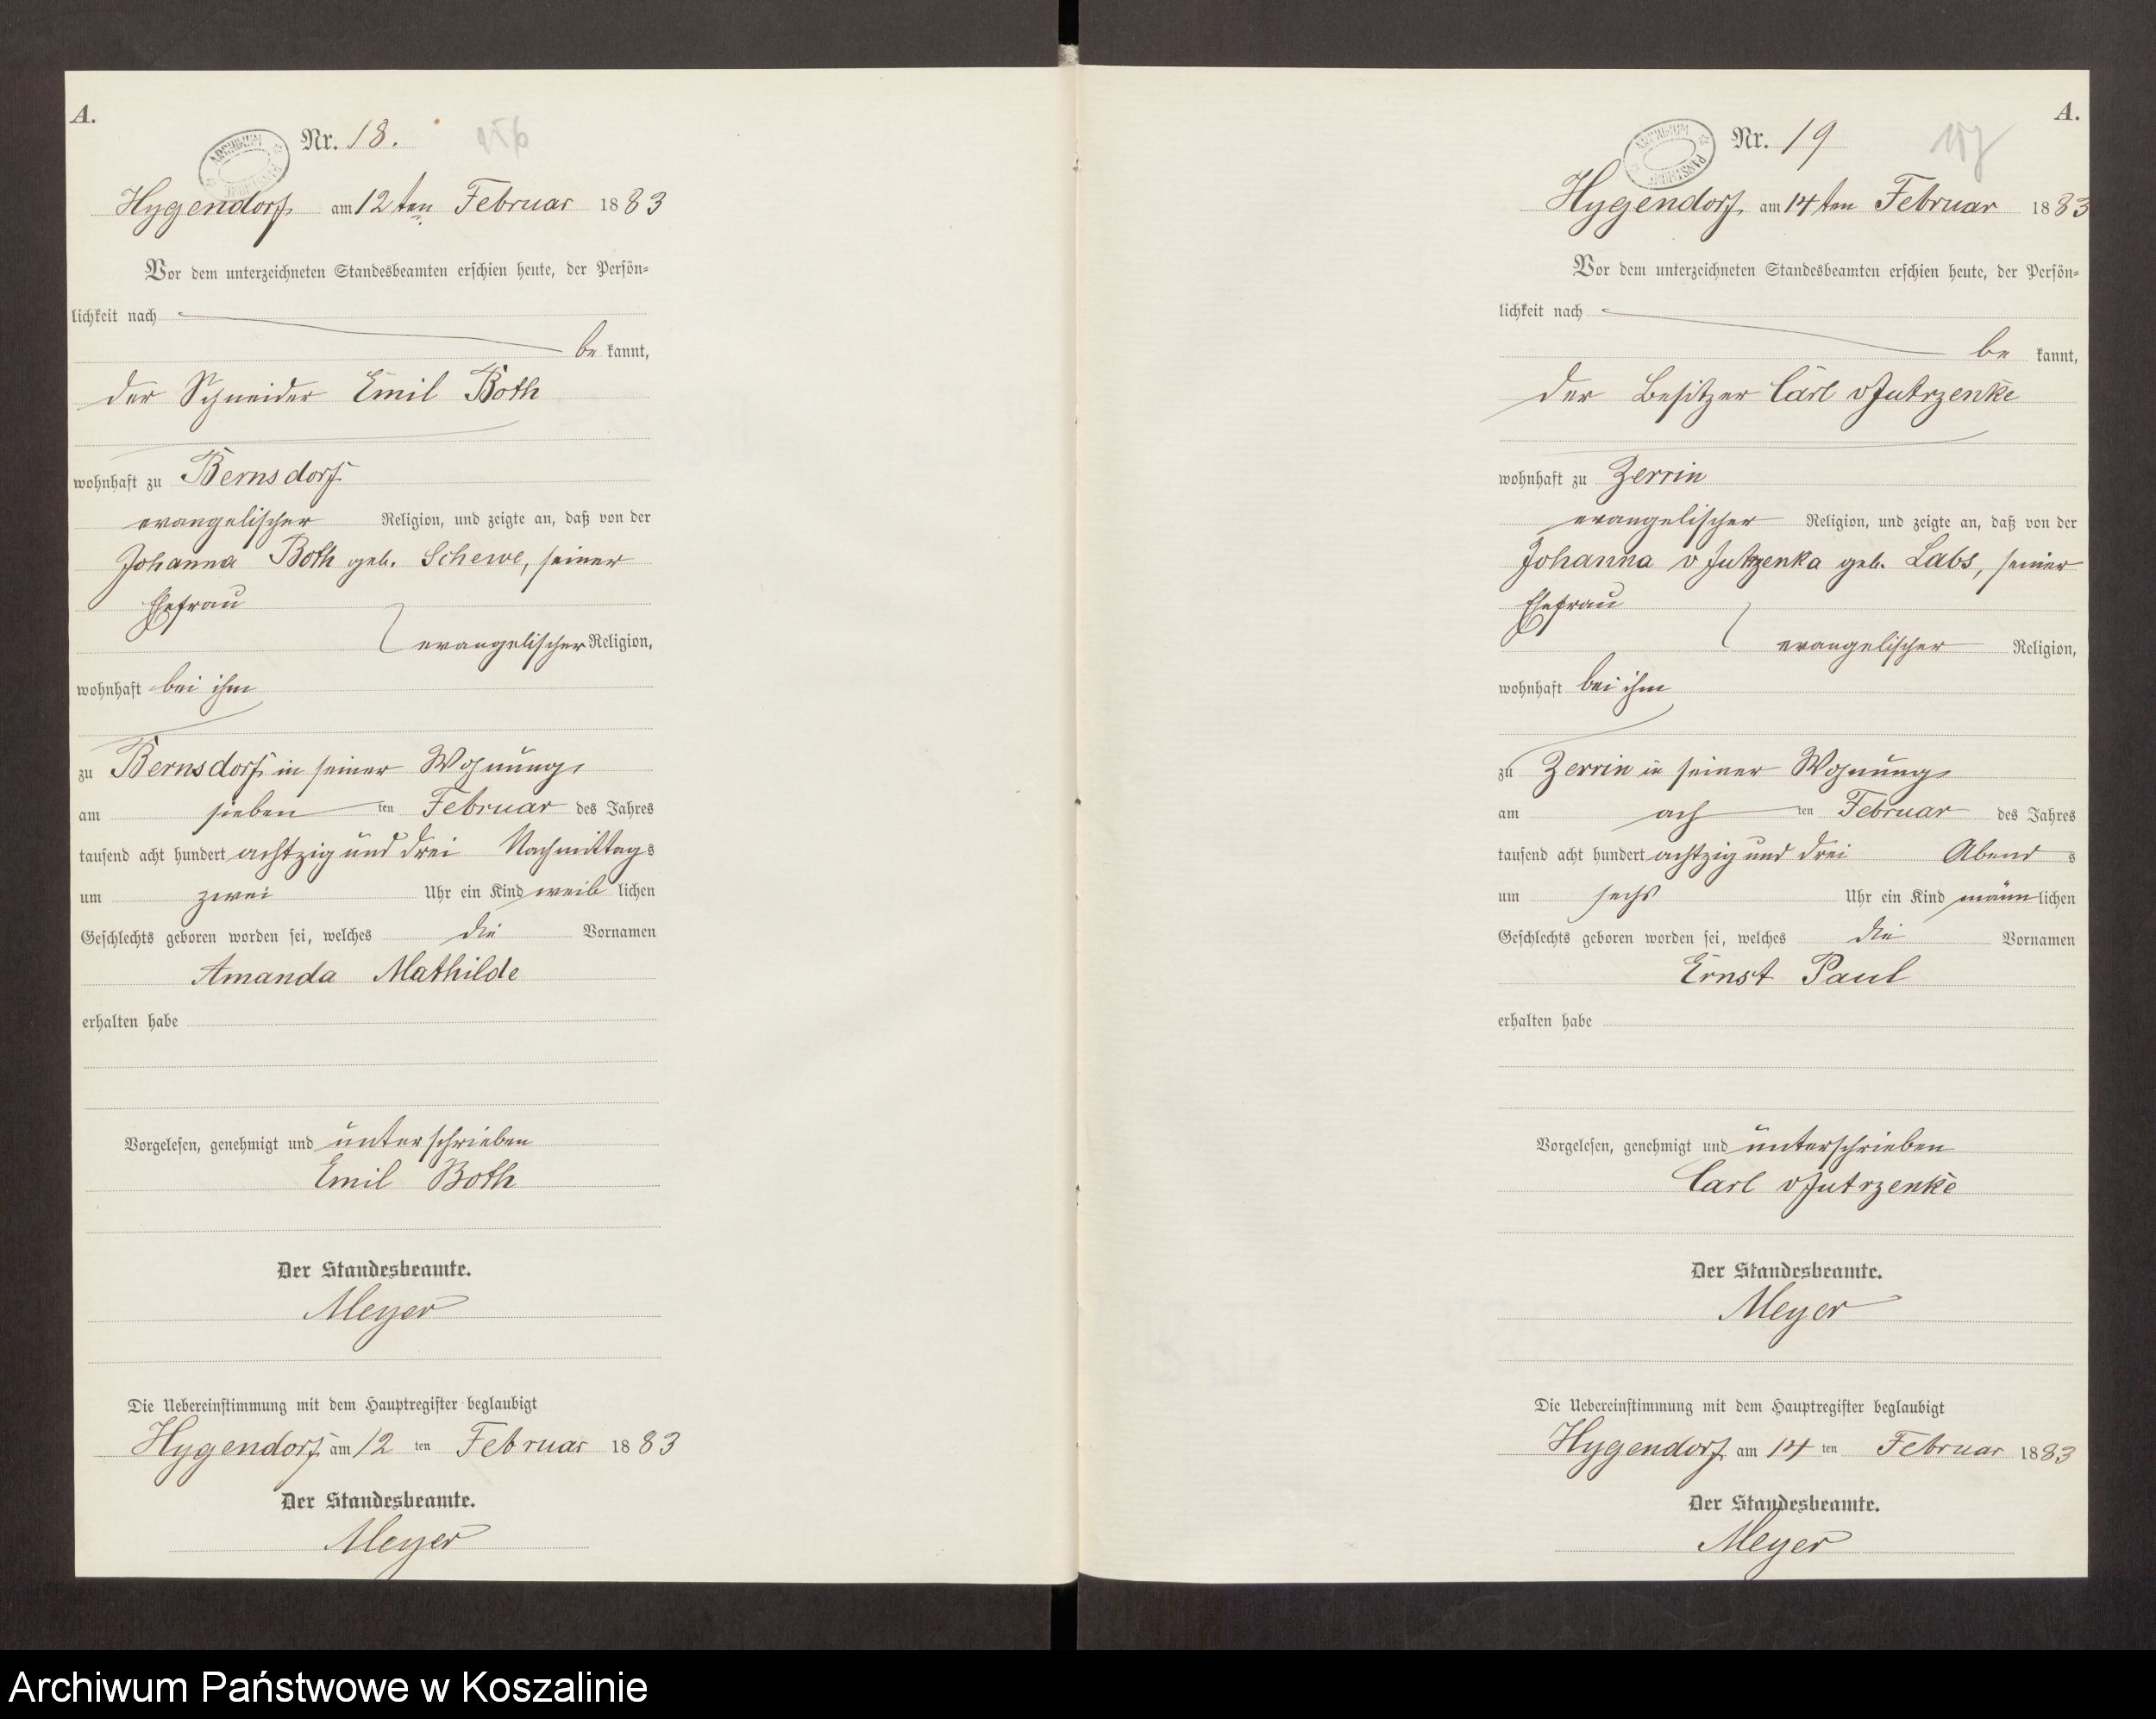 A.
Nr. 18.
ARCHIWUM
Hygendorf am 12ten Februar 1883
Vor dem unterzeichneten Standesbeamten erschien heute, der Persön-
lichkeit nach
be kannt,
der Schneider Emil Both
wohnhaft zu Bernsdorf
evangelischer Religion, und zeigte an, daß von der
Johanna Both geb. Schewe, seiner
Ehefrau
evangelischer Religion,
wohnhaft bei ihm
zu Bernsdorf in seiner Wohnung,
am sieben ten Februar des Jahres
tausend acht hundert achtzig und drei Nachmittags
um zwei Uhr ein Kind weib lichen
Geschlechts geboren worden sei, welches die Vornamen
Amanda Mathilde
erhalten habe
Vorgelesen, genehmigt und unterschrieben
Emil Both
Der Standesbeamte.
Meyer
Die Uebereinstimmung mit dem Hauptregister beglaubigt
Hygendorf am 12 ten Februar 1883
Der Standesbeamte.
Meyer
A.
Nr. 19
157
ARCHIWUM PAŃSTWOWE
Hygendorf am 14ten Februar 1883
Vor dem unterzeichneten Standesbeamten erschien heute, der Persön-
lichkeit nach
be kannt,
der Besitzer Carl v Jutrzenke
wohnhaft zu Zerrin
evangelischer Religion, und zeigte an, daß von der
Johanna v Jutrzenka geb. Labs, seiner
Ehefrau
evangelischer Religion,
wohnhaft bei ihm
zu Zerrin in seiner Wohnung
am ach ten Februar des Jahres
tausend acht hundert achtzig und drei Abend s
um sechs Uhr ein Kind männ lichen
Geschlechts geboren worden sei, welches die Vornamen
Ernst Paul
erhalten habe
Vorgelesen, genehmigt und unterschrieben
Carl v Jutrzenke
Der Standesbeamte.
Meyer
Die Uebereinstimmung mit dem Hauptregister beglaubigt
Hygendorf am 14 ten Februar 1883
Der Standesbeamte.
Meyer
Archiwum Państwowe w Koszalinie